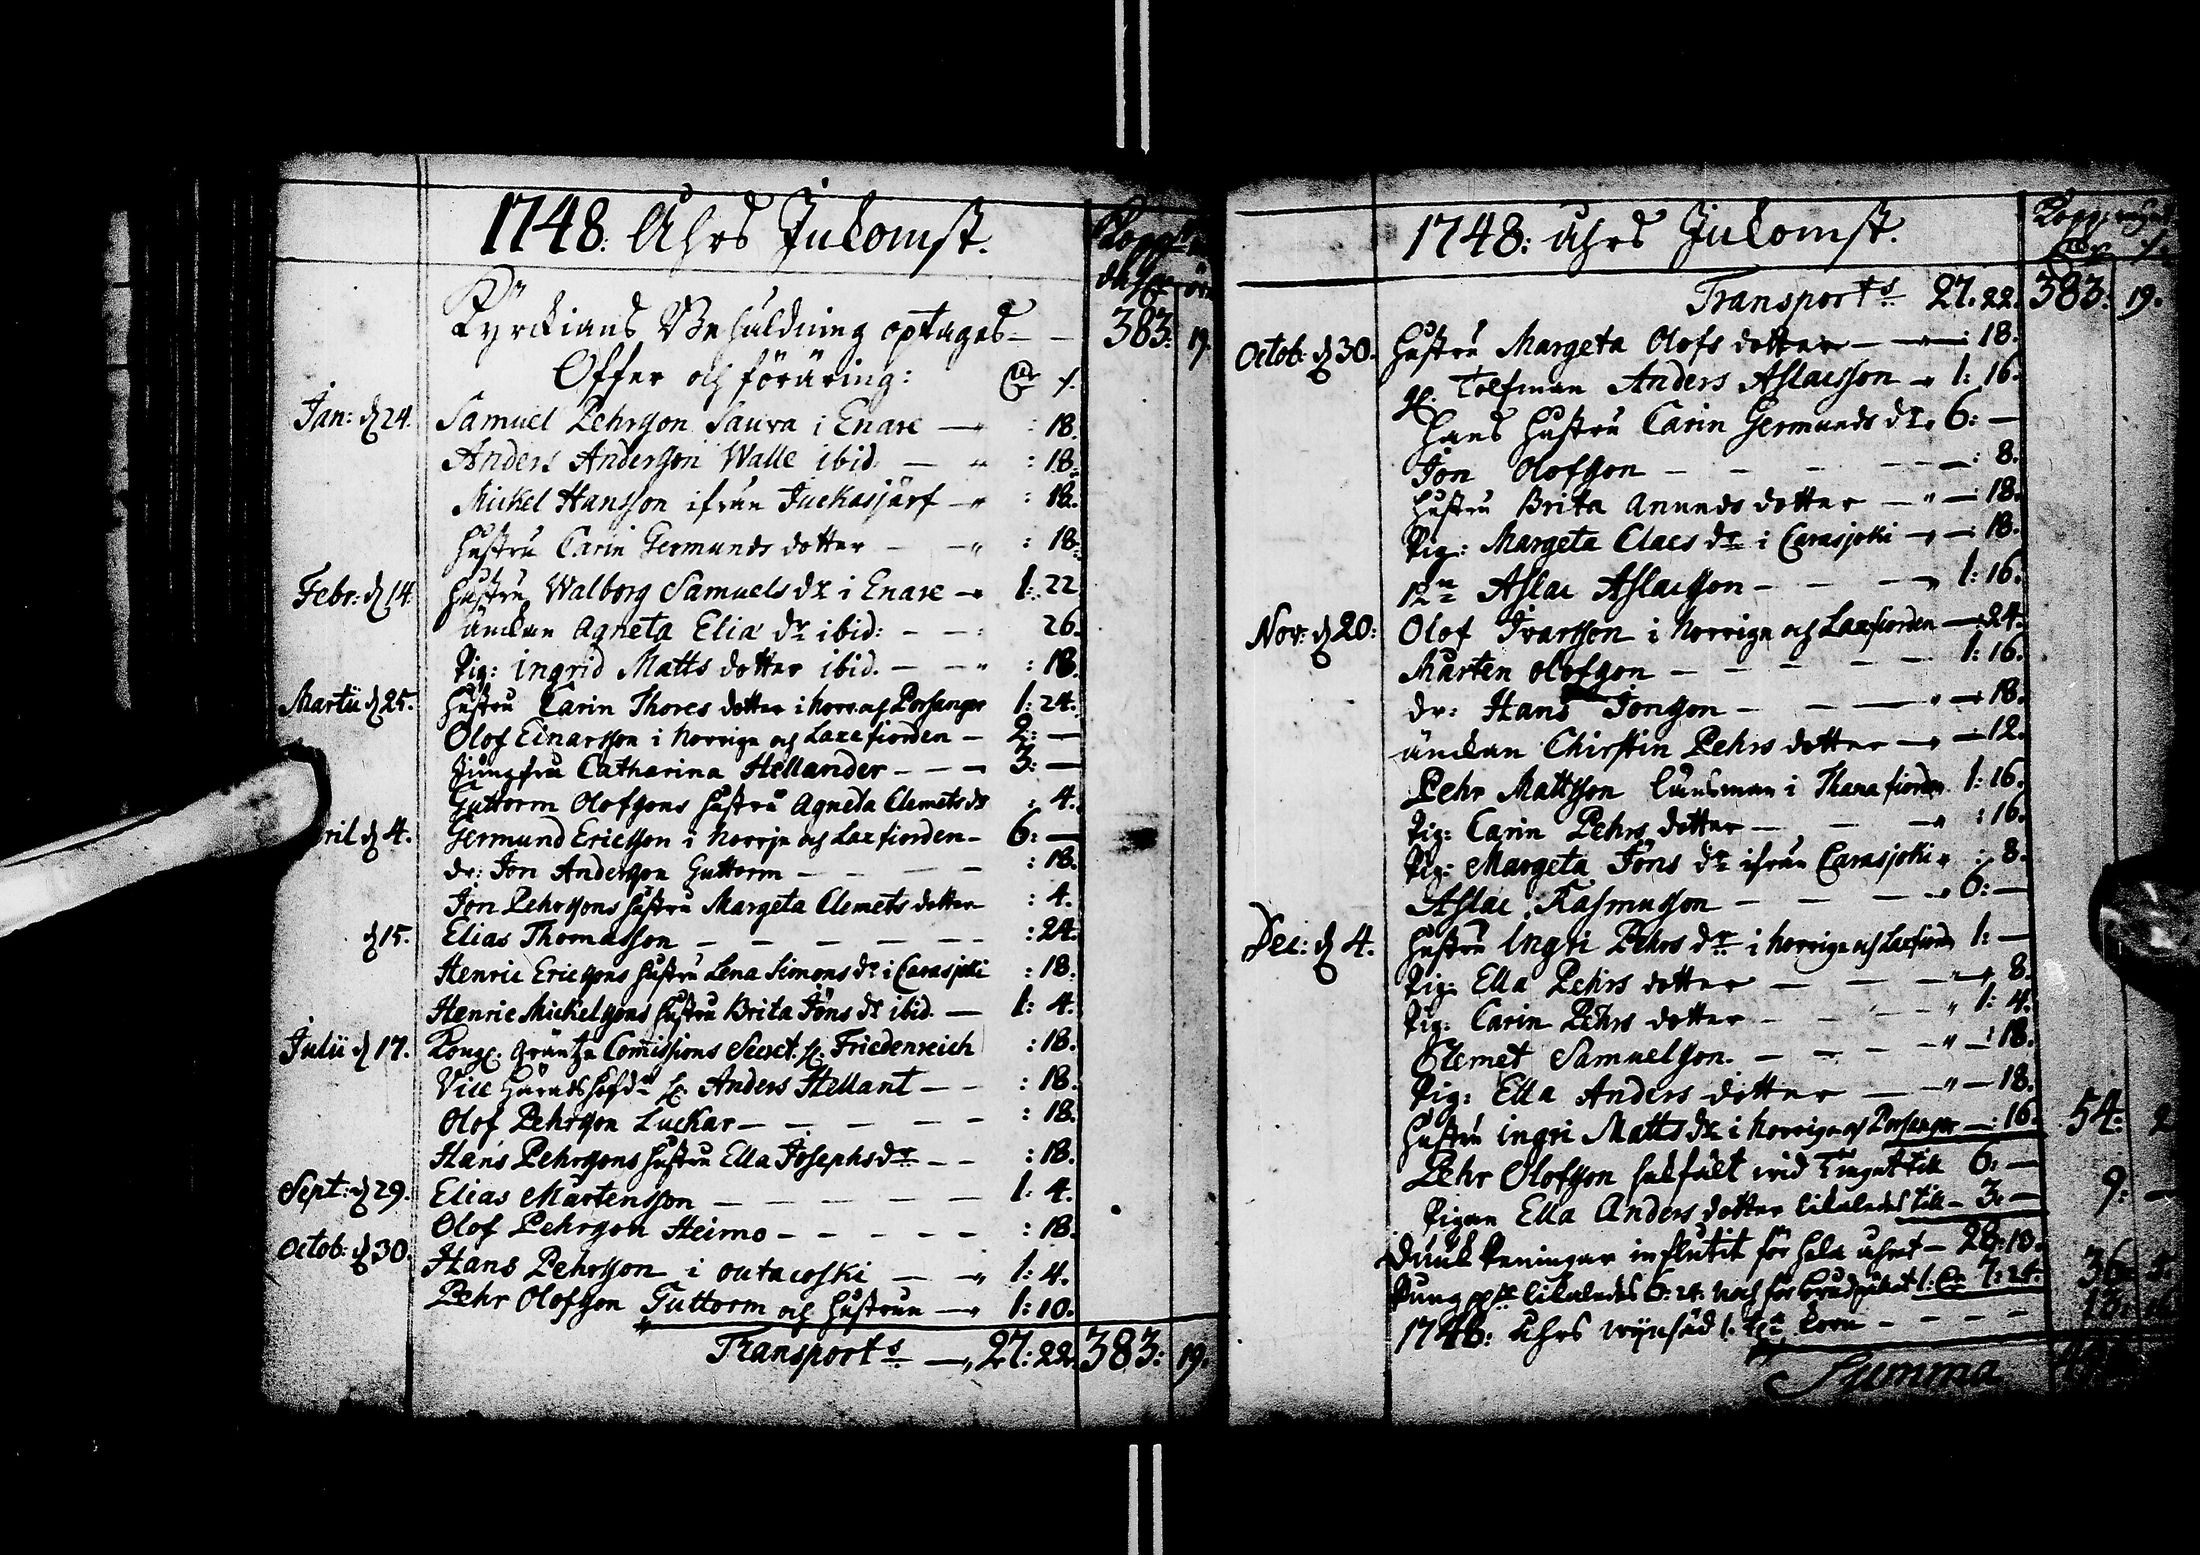 1748. Åhrs Inkomst.
Kyrckians Behåldning optages — 383: 19.
Offer och föräring:
Jan: d 24. Samuel Pehrsson Saura i Enare — : 18.
Anders Andersson Walle ibid. — : 18.
Mickel Hansson ifrån Juckasjärf — : 18.
Hustru Carin Germunds dotter — : 18.
Febr: d 14. Hustru Walborg Samuels dr i Enare — 1: 22.
änckan Agneta Eliæ dr ibid: — 26.
Pig: ingrid Matts dotter ibid. — : 18.
Martii d 25. Hustru Carin Thores dotter i Norr. och Porsanger 1: 24.
Olof Einarsson i Norrige och Laxefiorden — 2: —
Jungfru Catharina Hellander — 3: —
Guttorm Olofsons Hustru Agneta Clemets dr : 4.
ril d 4. Germund Ericsson i Norrje och Laxefiorden — 6: —
dr: Jon Andersson Guttorm — : 18.
Jon Pehrssons Hustru Margeta Clemets dotter : 4.
d 15. Elias Thomasson — : 24.
Henric Ericsons Hustru Lena Simons dr i Carasjoki : 18.
Henric Mickelsons Hustru Brita Jöns dr ibid. — 1: 4.
Julii d 17. Kongl. Gräntze Comissions Secret. H. Friedenreich : 18.
Vice Häradshöfd. H. Anders Hellant — : 18.
Olof Pehrsson Luckar — : 18.
Hans Pehrssons Hustru Ella Josephs dr — : 18.
Sept: d 29. Elias Mårtensson — 1: 4.
Olof Pehrsson Heimo — : 18.
Octob: d 30. Hans Pehrsson i outacoski — 1: 4.
Pehr Olofsson Guttorm och Hustrun — 1: 10.
Transport — 27: 22. 383: 19.
1748: Åhrs Inkomst.
Transport 27. 22. 383: 19.
Octob: d 30. Hustru Margeta Olofs dotter — : 18.
Tolfman Anders Aslacsson — 1: 16.
Hans Hustru Carin Germunds dr. 6: —
Jon Olofsson — : 8.
Hustru Brita Anunds dotter — 18.
Pig: Margeta Claes dr i Carasjoki — 18.
12n Aslac Aslacsson — 1: 16.
Nov: d 20: Olof Ivarsson i Norrige och Laxefiorden — 24.
Mårten Olofsson — 1: 16.
dr: Hans Jonsson — 18.
änckan Chirstin Pehrs dotter — 12.
Pehr Mattsson länsman i Thana fiorden. 1: 16.
Pig: Carin Pehrs dotter — : 16.
Pig: Margeta Jöns dr ifrån Carasjoki : 8.
Aslac Rasmusson — 6: —
Dec: d 4. Hustru Ingri Pehrs dr i Norrige och Laxfiord 1: —
Pig: Ella Pehrs dotter — 8.
Pig: Carin Pehrs dotter — 1: 4.
Clemet Samuelsson. — : 18.
Pig: Ella Anders dotter — 18.
Hustru ingri Matts dr i Norrige och Porsanger — : 16. 54: 2
Pehr Olofsson sakfält wid Tinget till 6: —
Pigan Ella Anders dotter likaledes till — 3: — 9: —
penningar influtit för hela åhret — 28: 13.
Pung likaledes 6: 24. noch för 1. 7: 24. 36: 5.
1748: Åhrs 1. korn — 13:
Summa